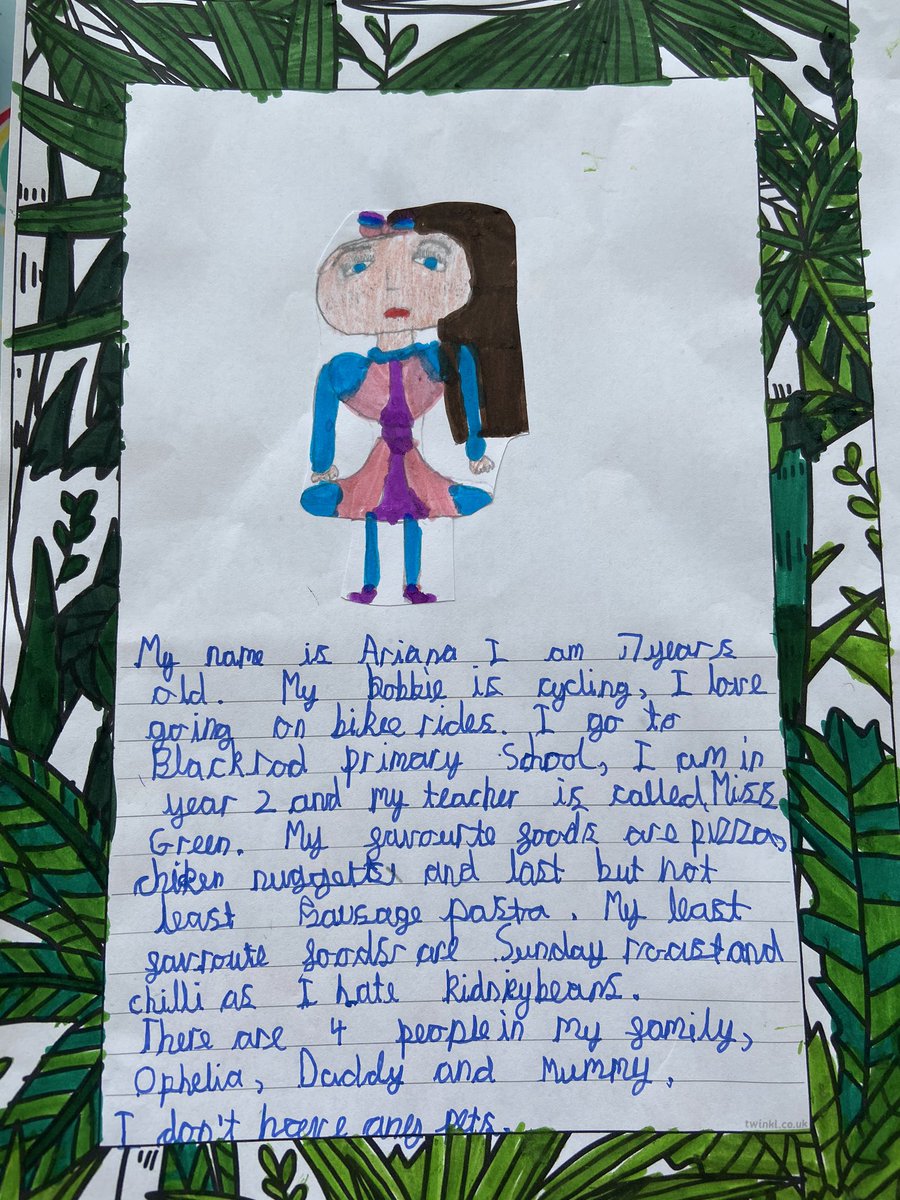 My name is Ariana I am 7 years
old. My hobbie is cycling, I love
going on bike rides. I go to
Blackrod primary School, I am in
year 2 and my teacher is called Miss
Green. My favourte foods are pizza,
chiken nuggets and last but not
least Sausage pasta. My least
favroute foods are Sunday roast and
chilli as I hate kidniybeans.
There are 4 people in my family,
Ophelia, Daddy and Mummy.
I don't have any pets.
twinkl.co.uk